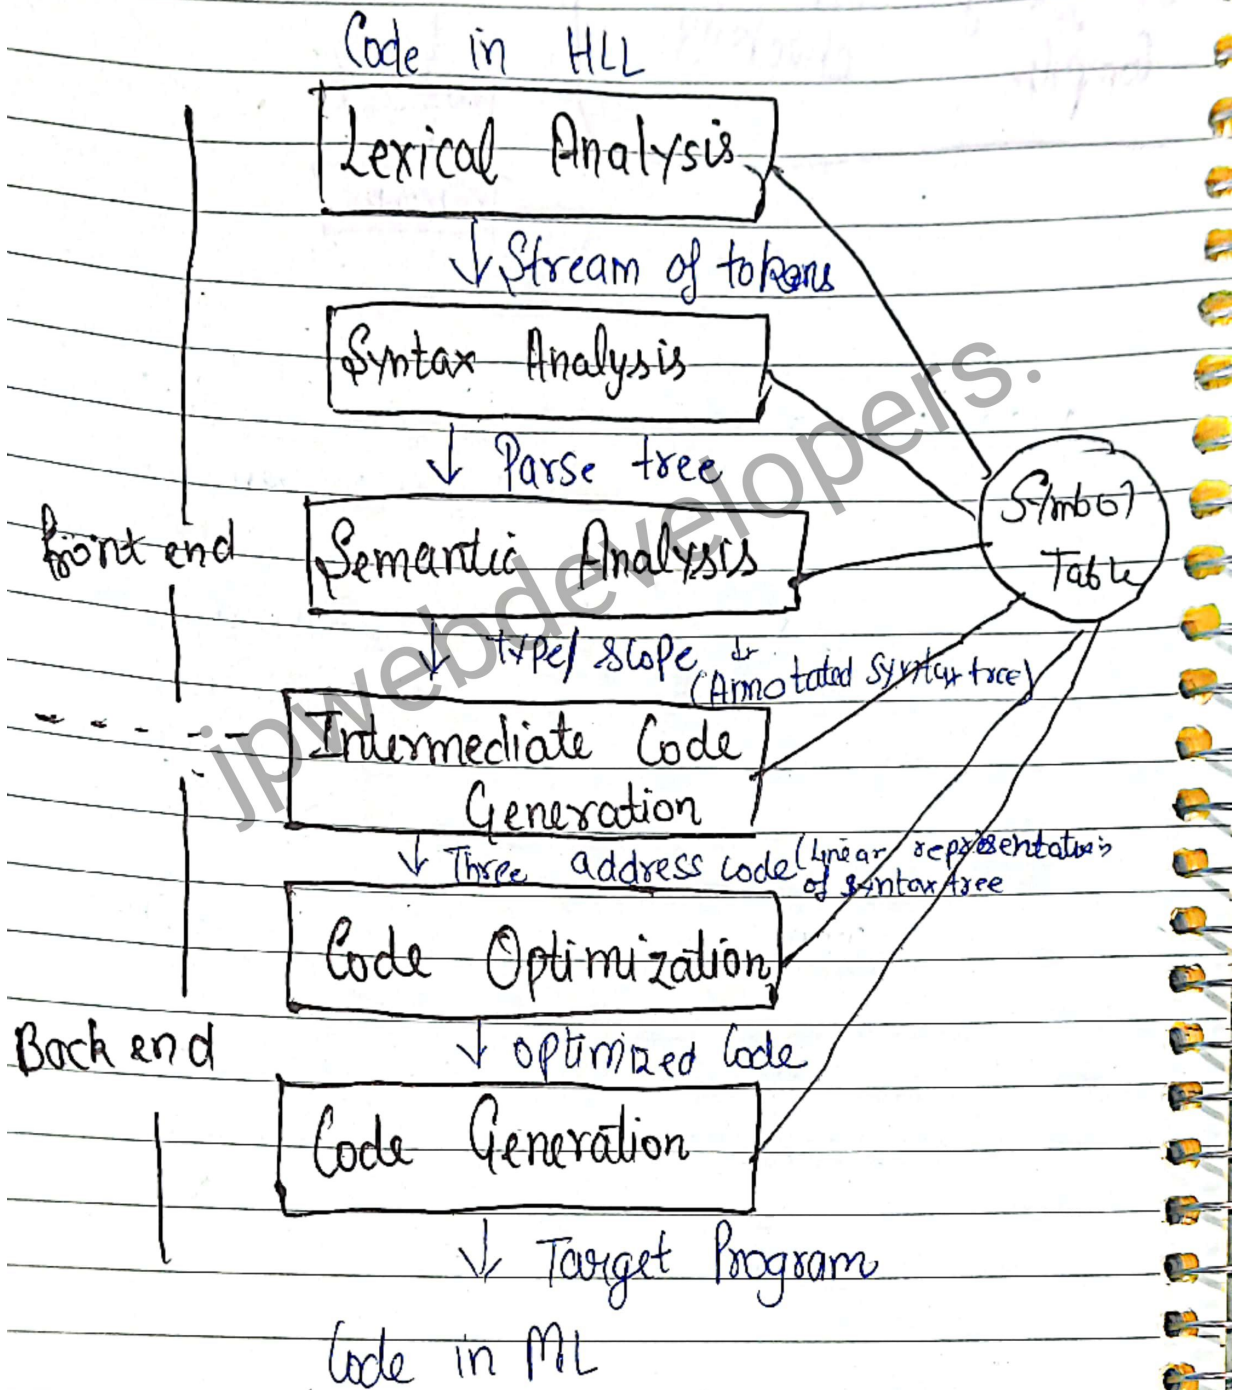 Code in HLL
Lexical Analysis
↓ Stream of tokens
Syntax Analysis
↓ Parse tree
Symbol
Table
front end
Semantic Analysis
↓ type/ scope
(Annotated Syntax tree)
Intermediate Code
Generation
↓ Three address code (Linear representation
of syntax tree
Code Optimization
Back end
↓ optimized Code
Code Generation
↓ Target Program
Code in ML
jpwebdevelopers.